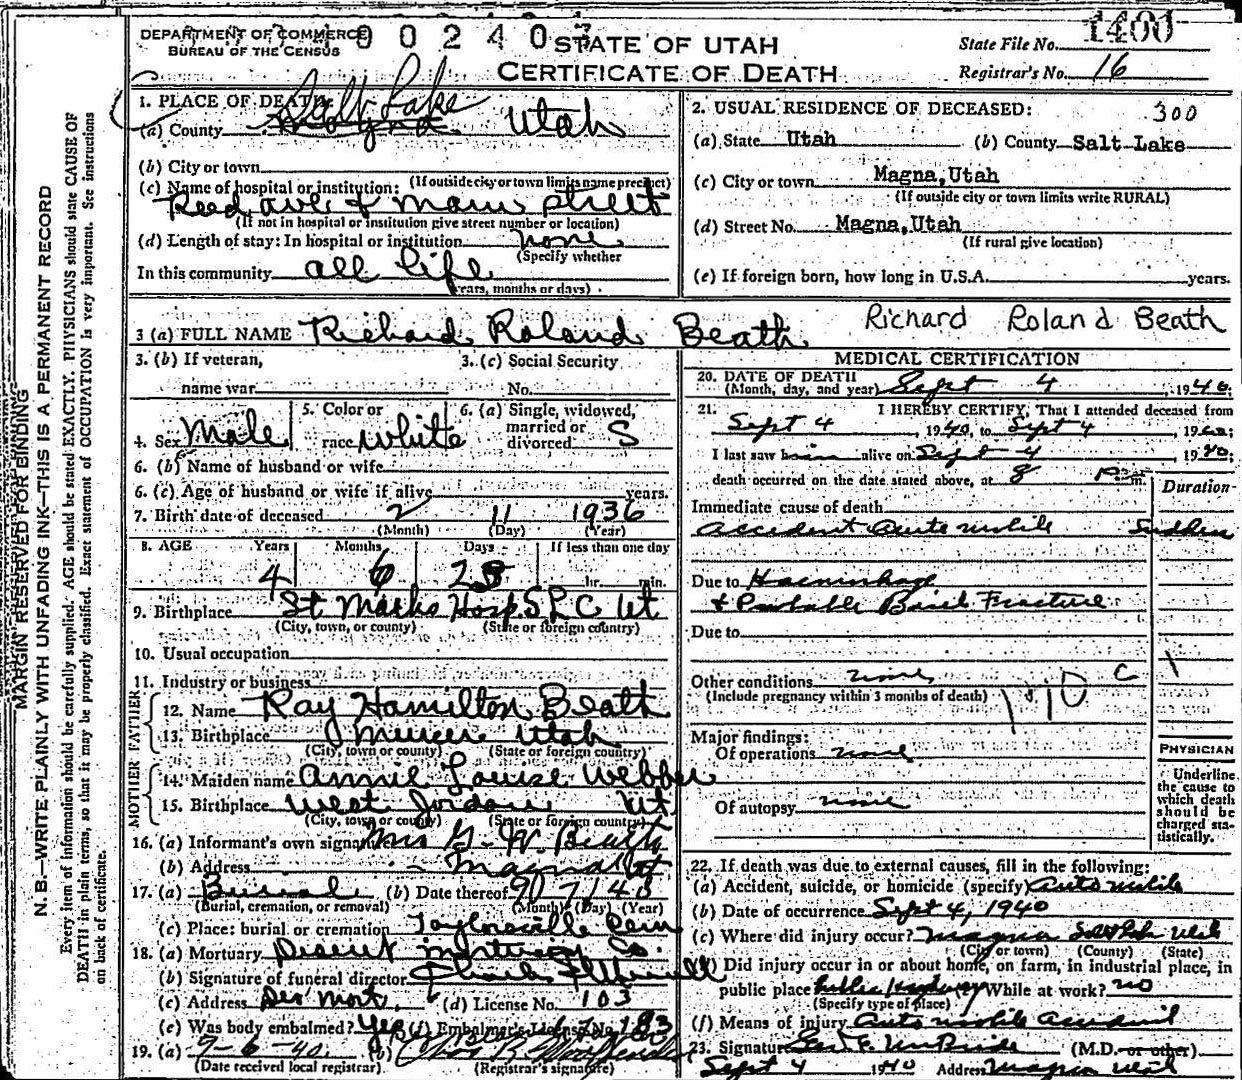 DEPARTMENT OF COMMERCE
BUREAU OF THE CENSUS
0 0 2 4 0
STATE OF UTAH
CERTIFICATE OF DEATH
State File No. 1400
Registrar's No. 16
MARGIN RESERVED FOR BINDING
N. B.—WRITE PLAINLY WITH UNFADING INK—THIS IS A PERMANENT RECORD
Every item of information should be carefully supplied. AGE should be stated EXACTLY. PHYSICIANS should state CAUSE OF
DEATH in plain terms, so that it may be properly classified. Exact statement of OCCUPATION is very important. See instructions
on back of certificate.
1. PLACE OF DEATH:
(a) County Salt Lake Magna Utah
(b) City or town
(If outside city or town limits name precinct)
(c) Name of hospital or institution:
Reed ave & main street
(If not in hospital or institution give street number or location)
(d) Length of stay: In hospital or institution none
(Specify whether
In this community all life
years, months or days)
2. USUAL RESIDENCE OF DECEASED: 300
(a) State Utah (b) County Salt Lake
(c) City or town Magna, Utah
(If outside city or town limits write RURAL)
(d) Street No. Magna, Utah
(If rural give location)
(e) If foreign born, how long in U.S.A. years.
3 (a) FULL NAME Richard Roland Beath Richard Roland Beath
3. (b) If veteran,
name war
3. (c) Social Security
No.
4. Sex Male
5. Color or
race white
6. (a) Single, widowed,
married or
divorced S
6. (b) Name of husband or wife
6. (c) Age of husband or wife if alive years.
7. Birth date of deceased 2 11 1936
(Month) (Day) (Year)
8. AGE Years Months Days If less than one day
4 6 23 hr. min.
9. Birthplace St Marks Hosp. S L C Ut
(City, town, or county) (State or foreign country)
10. Usual occupation
11. Industry or business
FATHER
12. Name Ray Hamilton Beath
13. Birthplace Mercur Utah
(City, town or county) (State or foreign country)
MOTHER
14. Maiden name Annie Louise Webber
15. Birthplace West Jordan Ut
(City, town or county) (State or foreign country)
16. (a) Informant's own signature Mrs G. W. Beath
(b) Address Magna Ut
17. (a) Burial (b) Date thereof 9 7 40
(Burial, cremation, or removal) (Month) (Day) (Year)
(c) Place: burial or cremation Taylorsville Cem
18. (a) Mortuary Deseret Mortuary Co.
(b) Signature of funeral director
(c) Address Des Mort. (d) License No. 103
(e) Was body embalmed? Yes (f) Embalmer's License No. 183
19. (a) 9-6-40 (b)
(Date received local registrar) (Registrar's signature)
MEDICAL CERTIFICATION
20. DATE OF DEATH
(Month, day, and year) Sept 4, 1940.
21. I HEREBY CERTIFY, That I attended deceased from
Sept 4, 1940, to Sept 4, 1940;
I last saw him alive on Sept 4 1940;
death occurred on the date stated above, at 8 P. m.
Duration
Immediate cause of death
Accident Automobile Sudden
Due to Haemorrhage
& Probable Basil Fracture
Due to
Other conditions none
(Include pregnancy within 3 months of death)
170 C 1
Major findings:
Of operations none
Of autopsy none
PHYSICIAN
Underline
the cause to
which death
should be
charged sta-
tistically.
22. If death was due to external causes, fill in the following:
(a) Accident, suicide, or homicide (specify) Automobile
(b) Date of occurrence Sept 4, 1940
(c) Where did injury occur? Magna Salt Lake Utah
(City or town) (County) (State)
Did injury occur in or about home, on farm, in industrial place, in
public place Public Highway While at work? no
(Specify type of place)
(f) Means of injury Automobile Accident
23. Signature (M.D. or other)
Sept 4 1940 Address Magna Utah